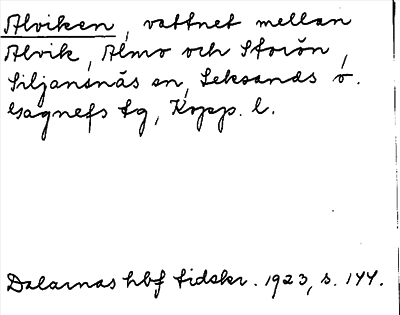 Alviken, vattnet mellan
Alvik, Almo och Storön,
Siljansnäs sn, Leksands o.
Gagnefs tg, Kopp. l.
Dalarnas hbf tidskr. 1923, s. 144.